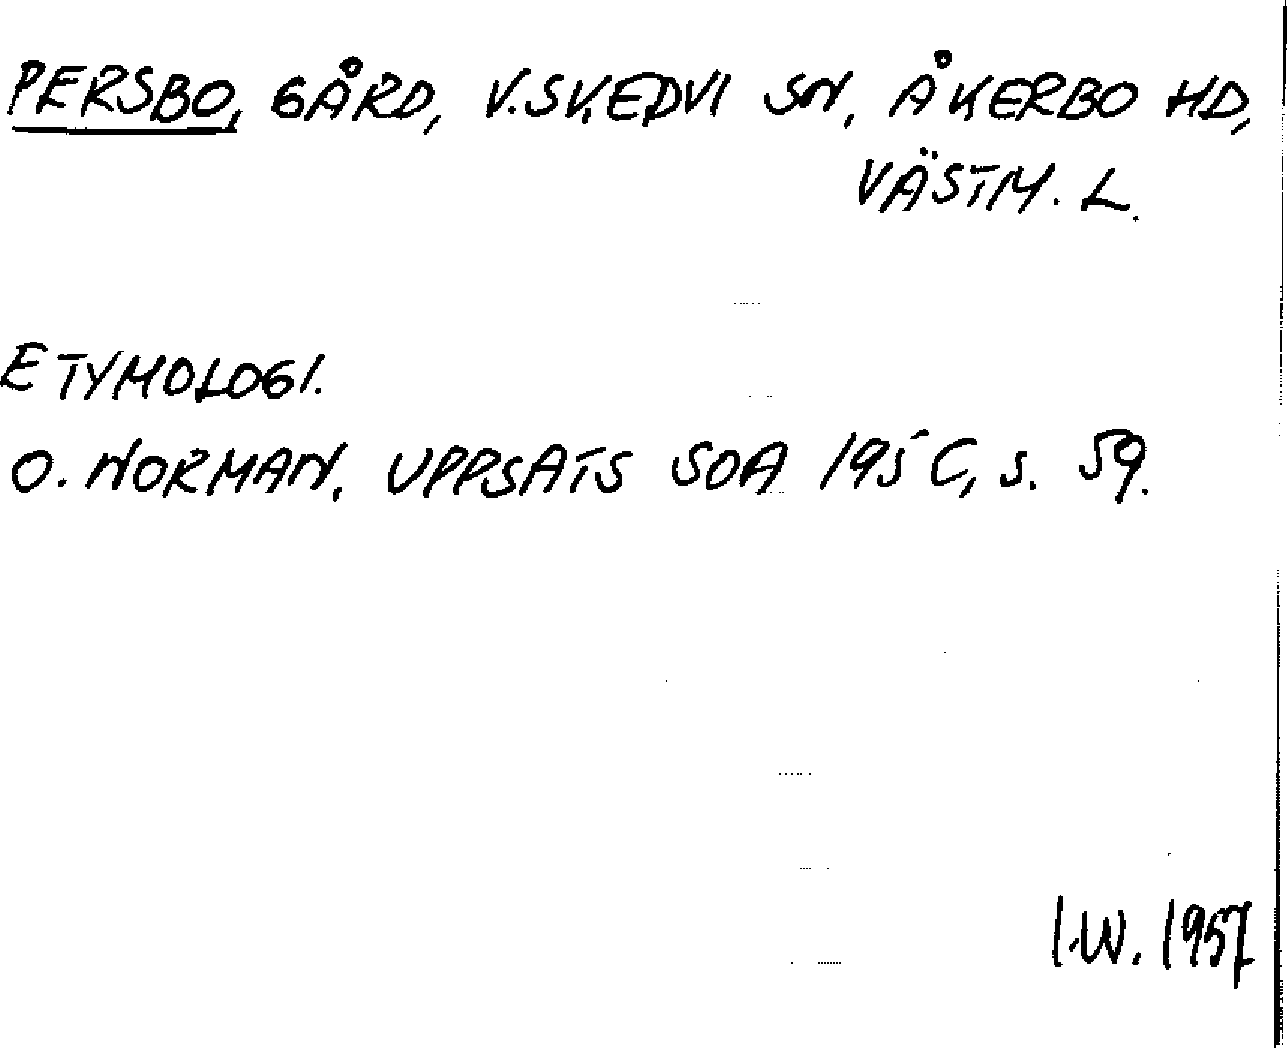 PERSBO, GÅRD, V. SKEDVI SN, ÅKERBO HD,
VÄSTM. L.
ETYMOLOGI.
O. NORMAN, UPPSATS SOA 195C, s. 59.
I.W. 1957